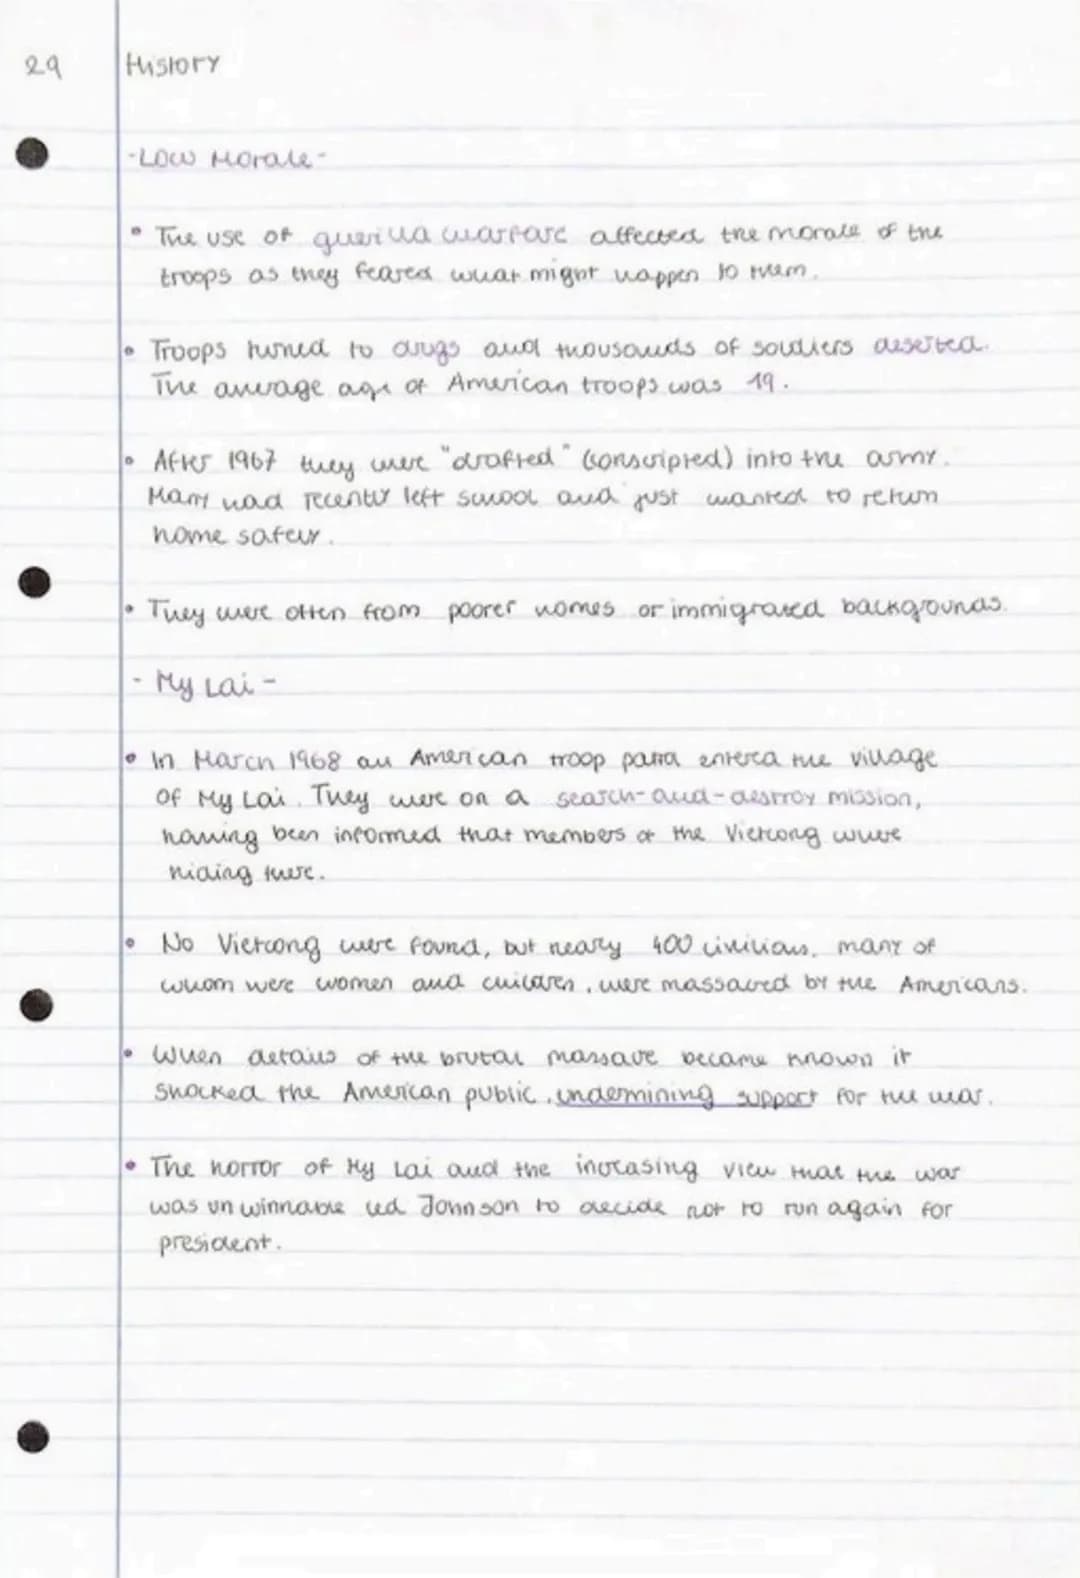 29 History
-Low Morale-
• The use of guerilla warfare affected the morale of the
troops as they feared what might happen to them.
• Troops turned to drugs and thousands of soldiers deserted.
The average age of American troops was 19.
• After 1967 they were "drafted" (conscripted) into the army.
Many had recently left school and just wanted to return
home safely.
• They were often from poorer homes or immigrated backgrounds.
- My Lai -
• In March 1968 an American troop patrol entered the village
of My Lai. They were on a search-and-destroy mission,
having been informed that members of the Vietcong where
hiding there.
• No Vietcong were found, but neary 400 civilians, many of
whom were women and children, were massacred by the Americans.
• When details of the brutal massacre became known it
shocked the American public, undermining support for the war.
• The horror of My Lai and the increasing view that the war
was unwinnable led Johnson to decide not to run again for
president.